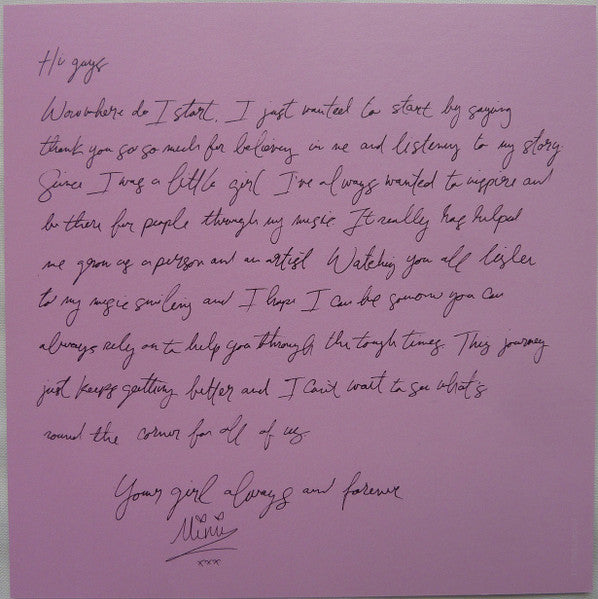 Hi guys
Wow where do I start, I just wanted to start by saying
thank you so so much for believing in me and listening to my story.
Since I was a little girl I've always wanted to inspire and
be there for people through my music. It really has helped
me grow as a person and an artist. Watching you all listen
to my music smiling and I hope I can be someone you can
always rely on to help you through the tough times. This journey
just keeps getting better and I can't wait to see what's
round the corner for all of us
Your girl always and forever
Mimi
xxx